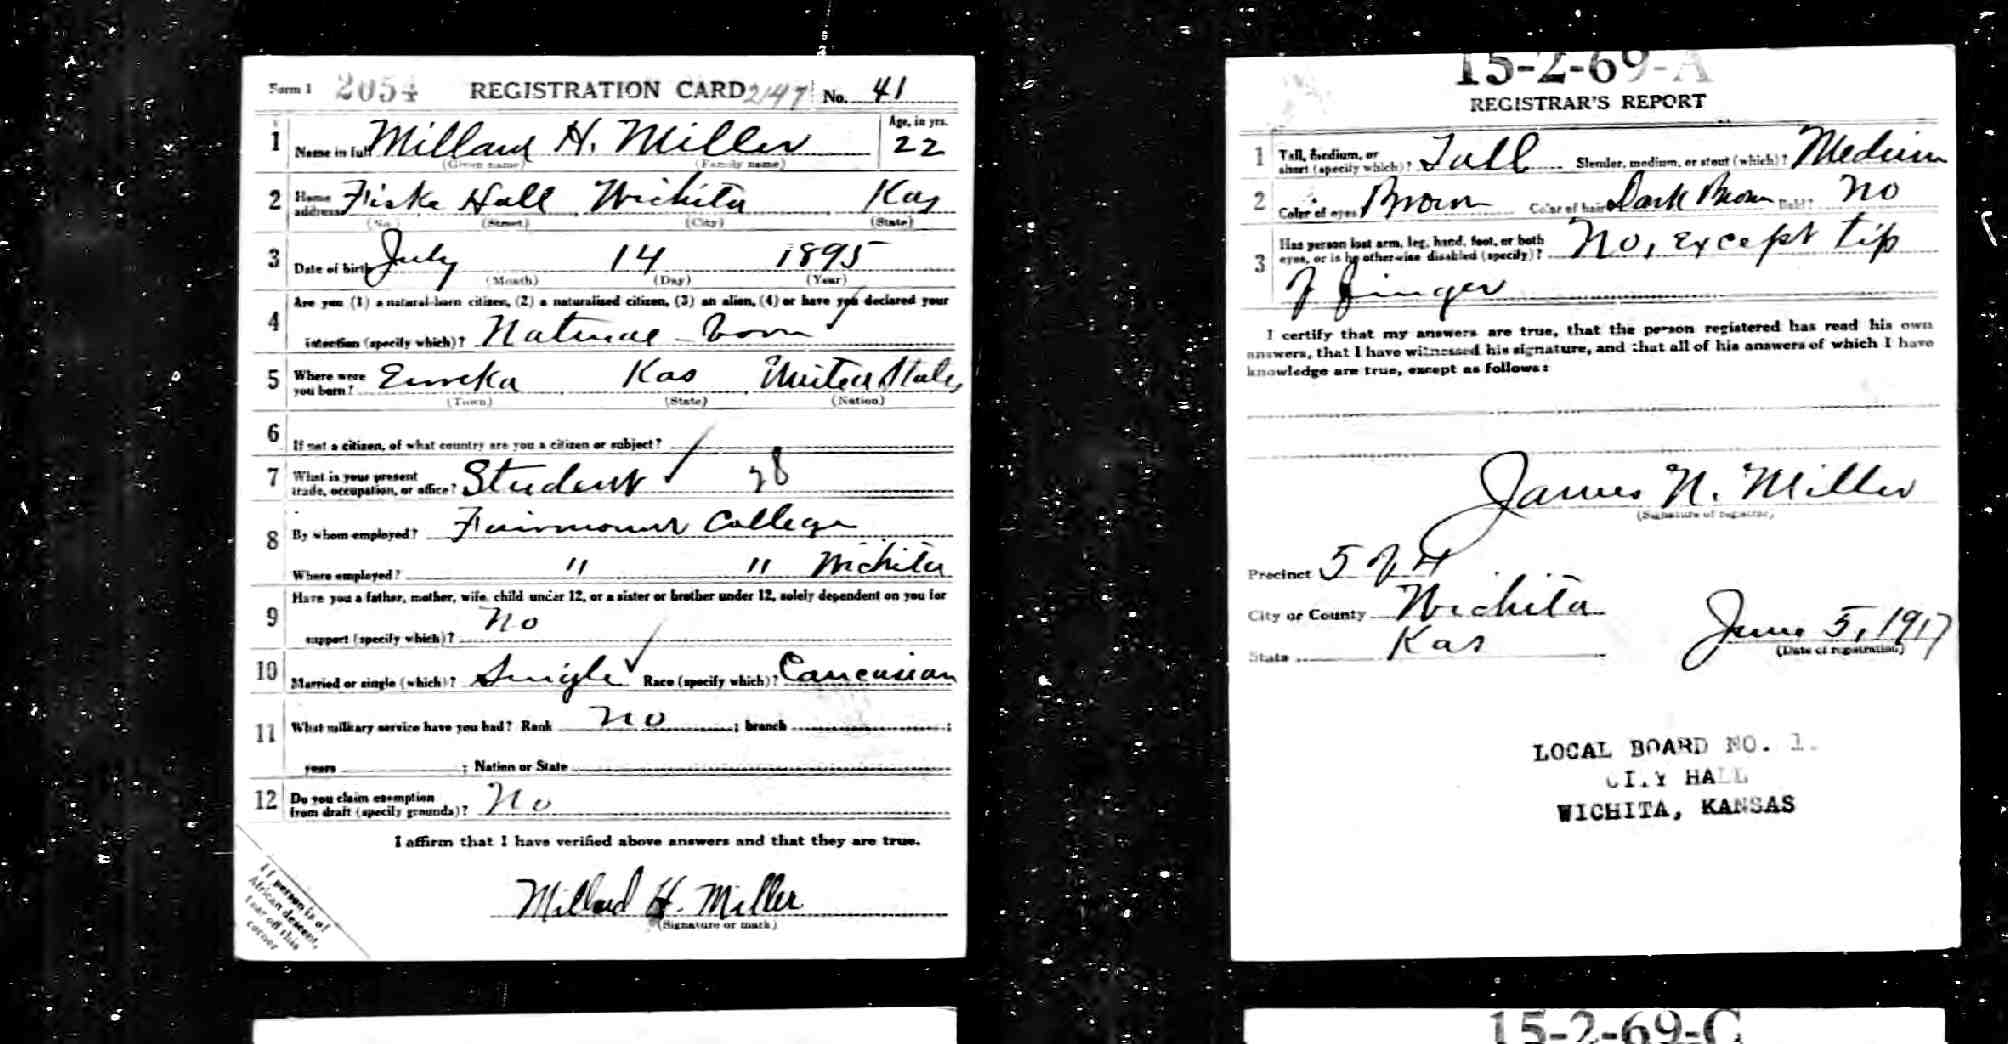 Form 1 2054 REGISTRATION CARD 2147 No. 41
1 Name in full Millard H. Miller Age, in yrs. 22
(Given name) (Family name)
2 Home address Fiske Hall Wichita Kas
(No.) (Street) (City) (State)
3 Date of birth July 14 1895
(Month) (Day) (Year)
4 Are you (1) a natural-born citizen, (2) a naturalized citizen, (3) an alien, (4) or have you declared your
intention (specify which)? Natural-born
5 Where were you born? Eureka Kas United States
(Town) (State) (Nation)
6 If not a citizen, of what country are you a citizen or subject?
7 What is your present trade, occupation, or office? Student 28
8 By whom employed? Fairmount College
Where employed? " " Wichita
9 Have you a father, mother, wife, child under 12, or a sister or brother under 12, solely dependent on you for
support (specify which)? No
10 Married or single (which)? Single Race (specify which)? Caucasian
11 What military service have you had? Rank no ; branch ;
years ; Nation or State
12 Do you claim exemption from draft (specify grounds)? No
I affirm that I have verified above answers and that they are true.
Millard H. Miller
(Signature or mark)
If person is of
African descent,
tear off this
corner
15-2-69-A
REGISTRAR'S REPORT
1 Tall, medium, or short (specify which)? Tall Slender, medium, or stout (which)? Medium
2 Color of eyes Brown Color of hair Dark Brown Bald? No
3 Has person lost arm, leg, hand, foot, or both
eyes, or is he otherwise disabled (specify)? No, except tip
of finger
I certify that my answers are true, that the person registered has read his own
answers, that I have witnessed his signature, and that all of his answers of which I have
knowledge are true, except as follows:
James N. Miller
(Signature of registrar)
Precinct 5 of 4
City or County Wichita
State Kas June 5, 1917
(Date of registration)
LOCAL BOARD NO. 1.
CITY HALL
WICHITA, KANSAS
15-2-69-C